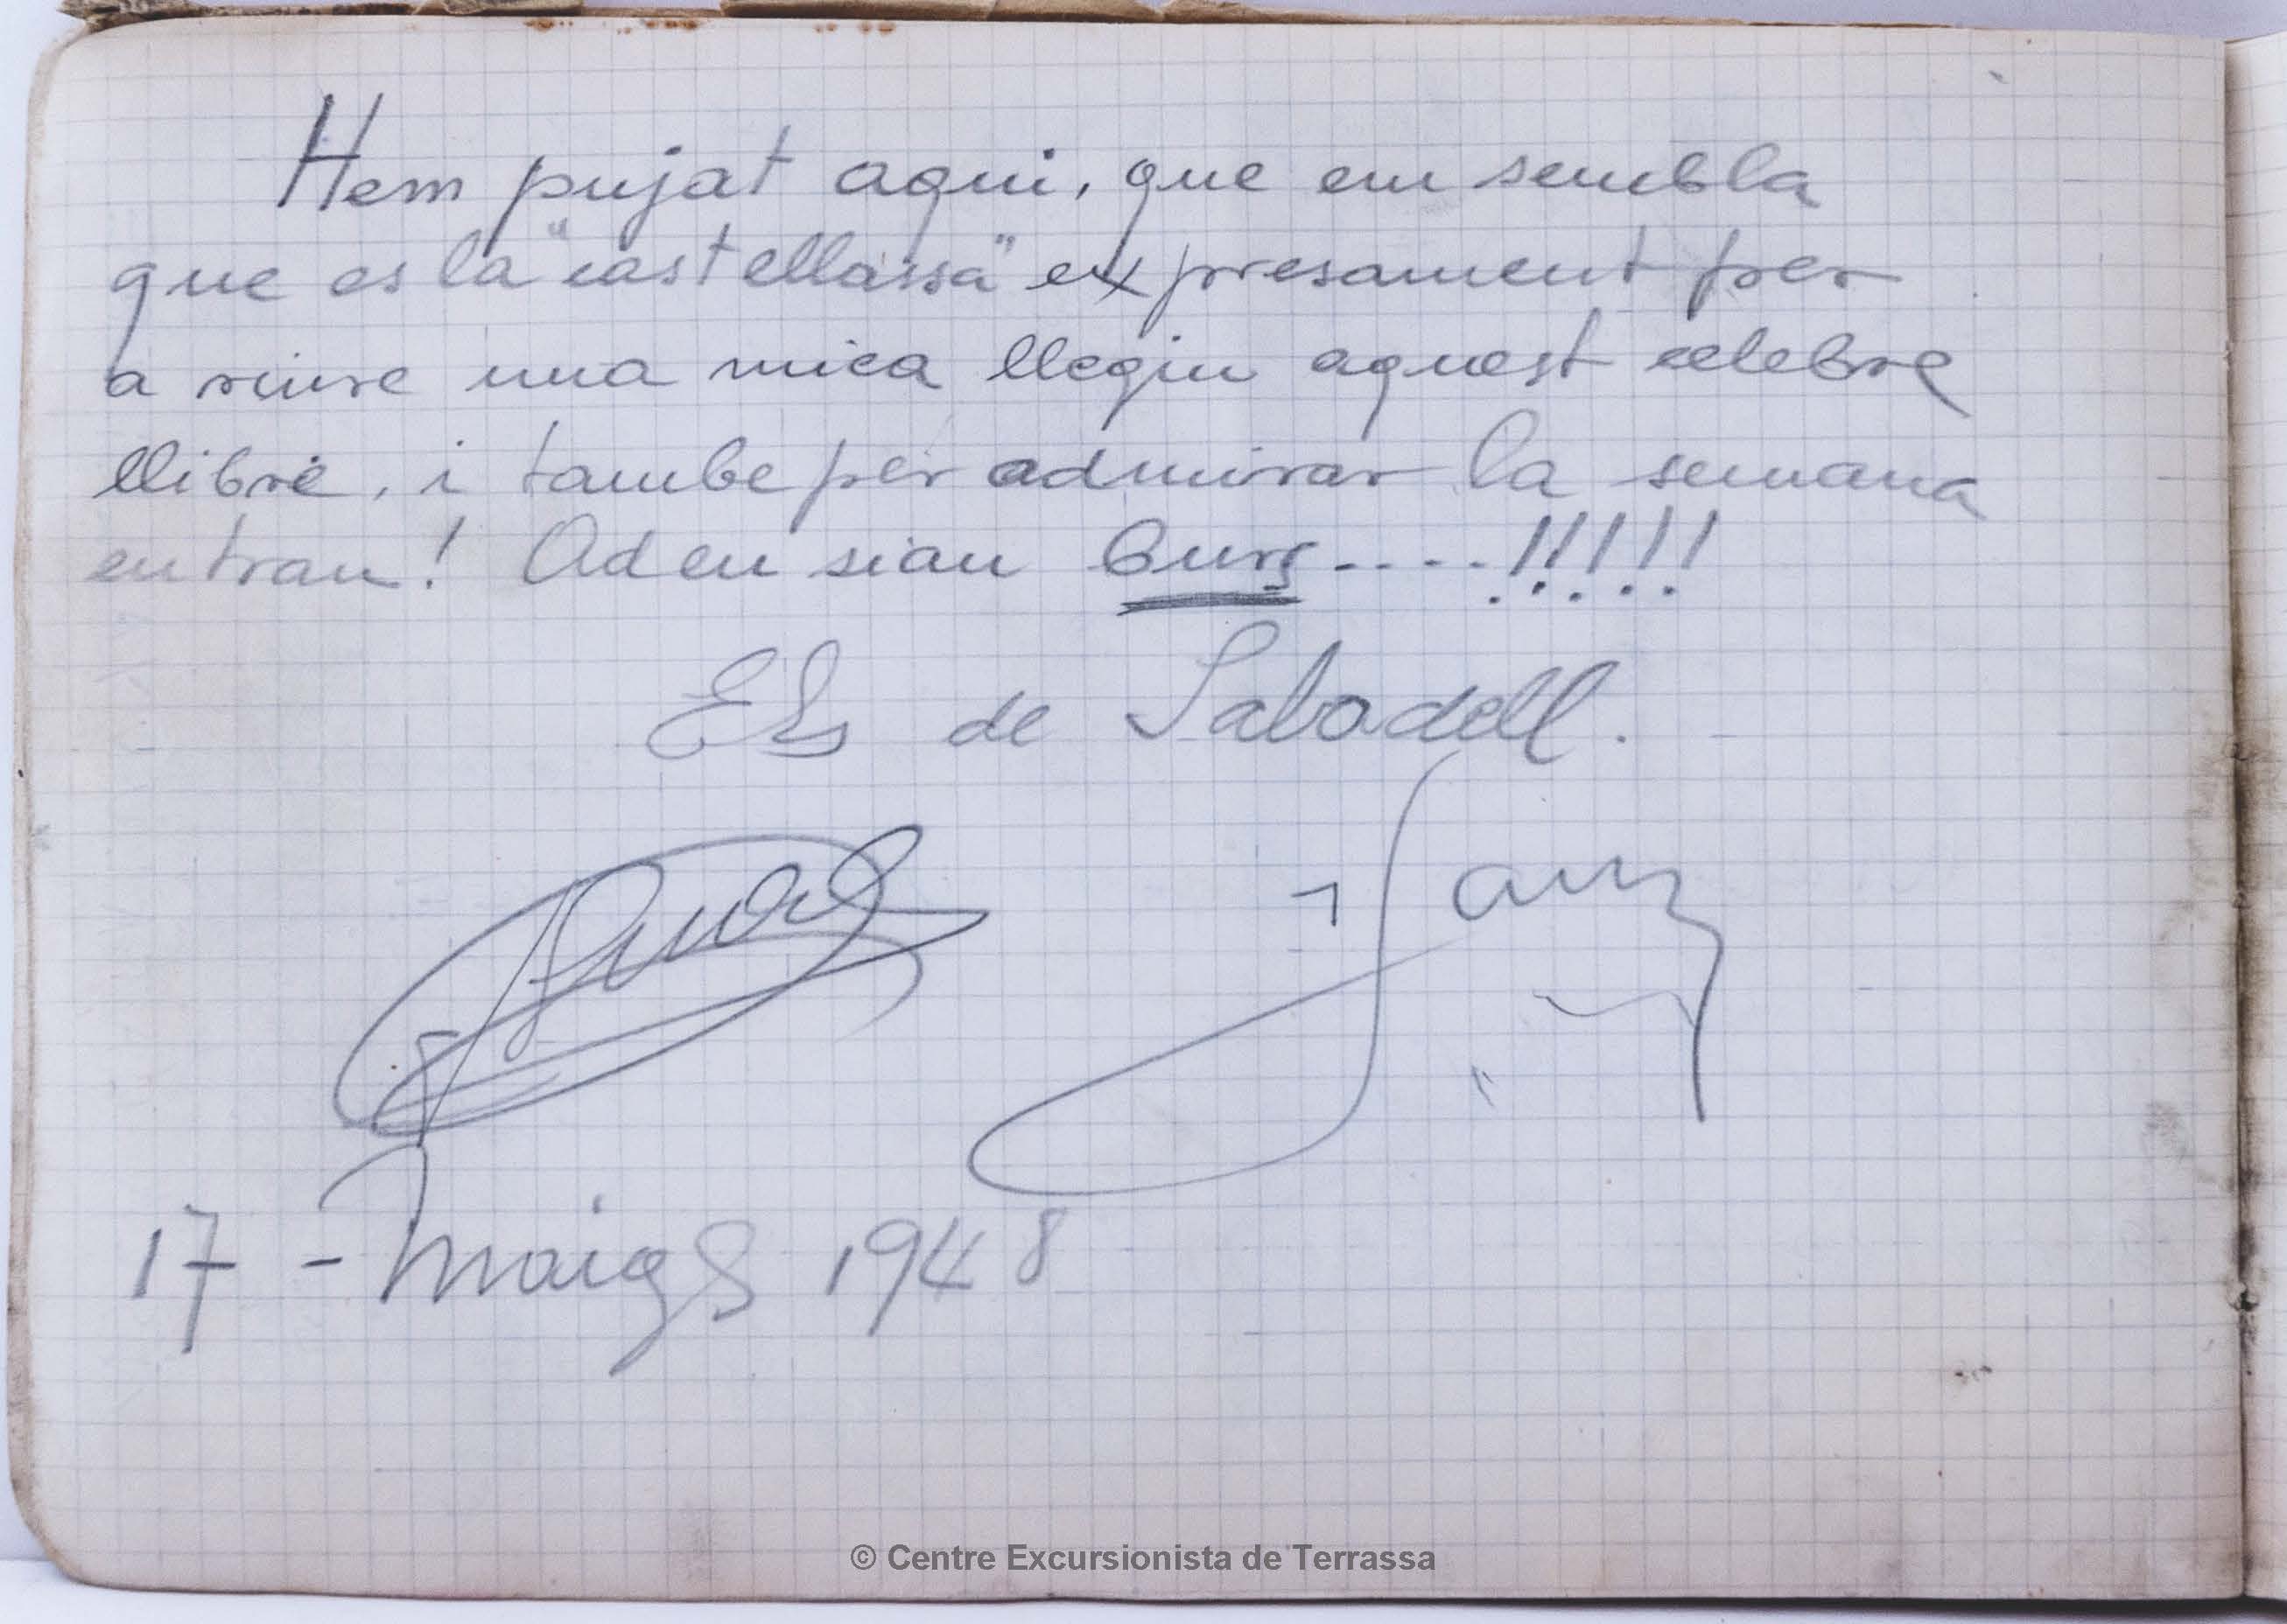 Hem pujat aqui, que em sembla
que es la "castellassa" expresament per
a riure una mica llegin aquest celebre
llibre, i tambe per admirar la semana
entran! Adeu siau Burs----!!!!!
Els de Sabadell.
17 - Maig 1948
© Centre Excursionista de Terrassa